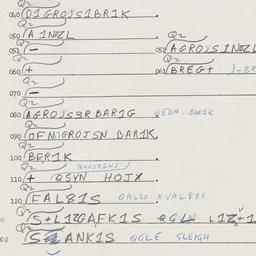 Q2
040 01GROJS1BR1K
Q2
050 A 1NØZL
Q2
051 – 052 AGROJS1NØZL
Q2
060 + 061 BREG+ )-BR
Q2
070 –
Q2
080 AGROJS3R BAR1G QEDN...BAR1K
Q2
090 OFN)GROJSN BAR1K
Q2
100 BER1K
Q2
110 + QSYN HOJX
Q2
120 FAL81S QALSO XVAL81S
Q2
S+L1ZGAFK1S QGLN L1Z+1
Q2
ANK1S QGLE SLEIGH